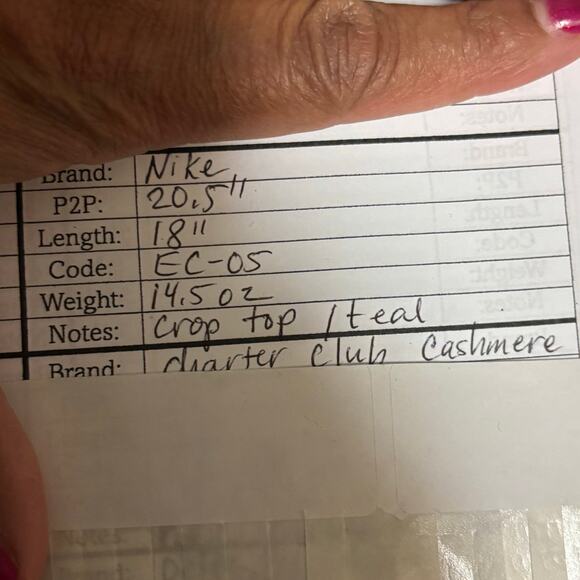 Brand: Nike
P2P: 20.5"
Length: 18"
Code: EC-05
Weight: 14.5 oz
Notes: Crop top / teal
Brand: Charter Club Cashmere